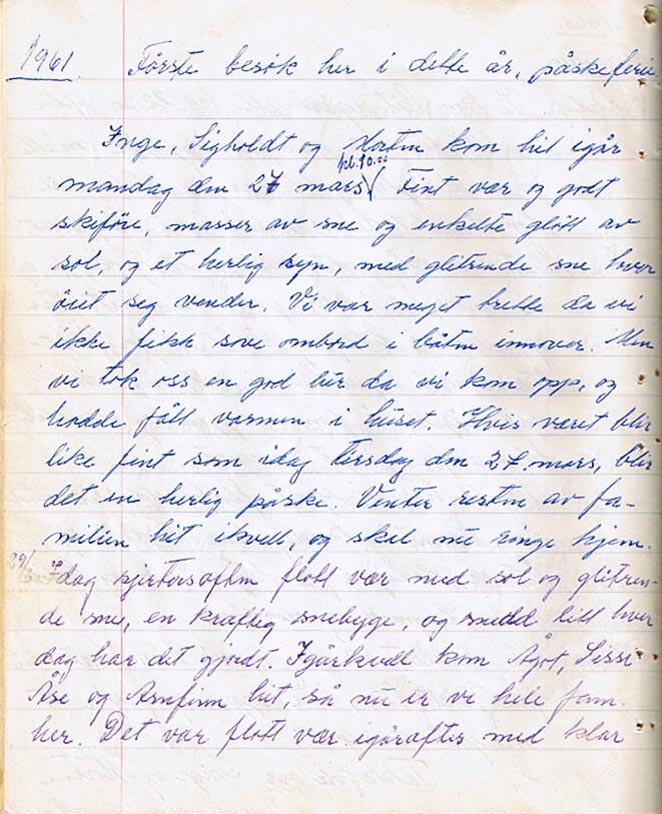 1961. Første besøk her i dette år, påskeferie
Inge, Sigholdt og kom hit igår
kl. 10.00
mandag den 27 mars √ Fint vær og godt
skiføre, masser av sne og enkelte glött av
sol, og et herlig syn, med glitrende sne hvor
öiet seg vender. Vi var meget trette da vi
ikke fikk sove ombord i båten innover. Men
vi tok oss en god lur da vi kom opp, og
hadde fått varmen i huset. Hvis været blir
like fint som idag tirsdag den 27. mars, blir
det en herlig påske. Venter resten av fa-
milien hit ikveld, og skal nu ringe hjem.
29/3 Idag skjærtorsaften flott vær med sol og glitren-
de sne, en kraftig snebyge, og snedd litt hver
dag har det gjordt. Igårkvell kom Ågot, Sissi
Åse og Arnfinn hit, så nu er vi hele fam.
her. Det var flott vær igåraftes med klar